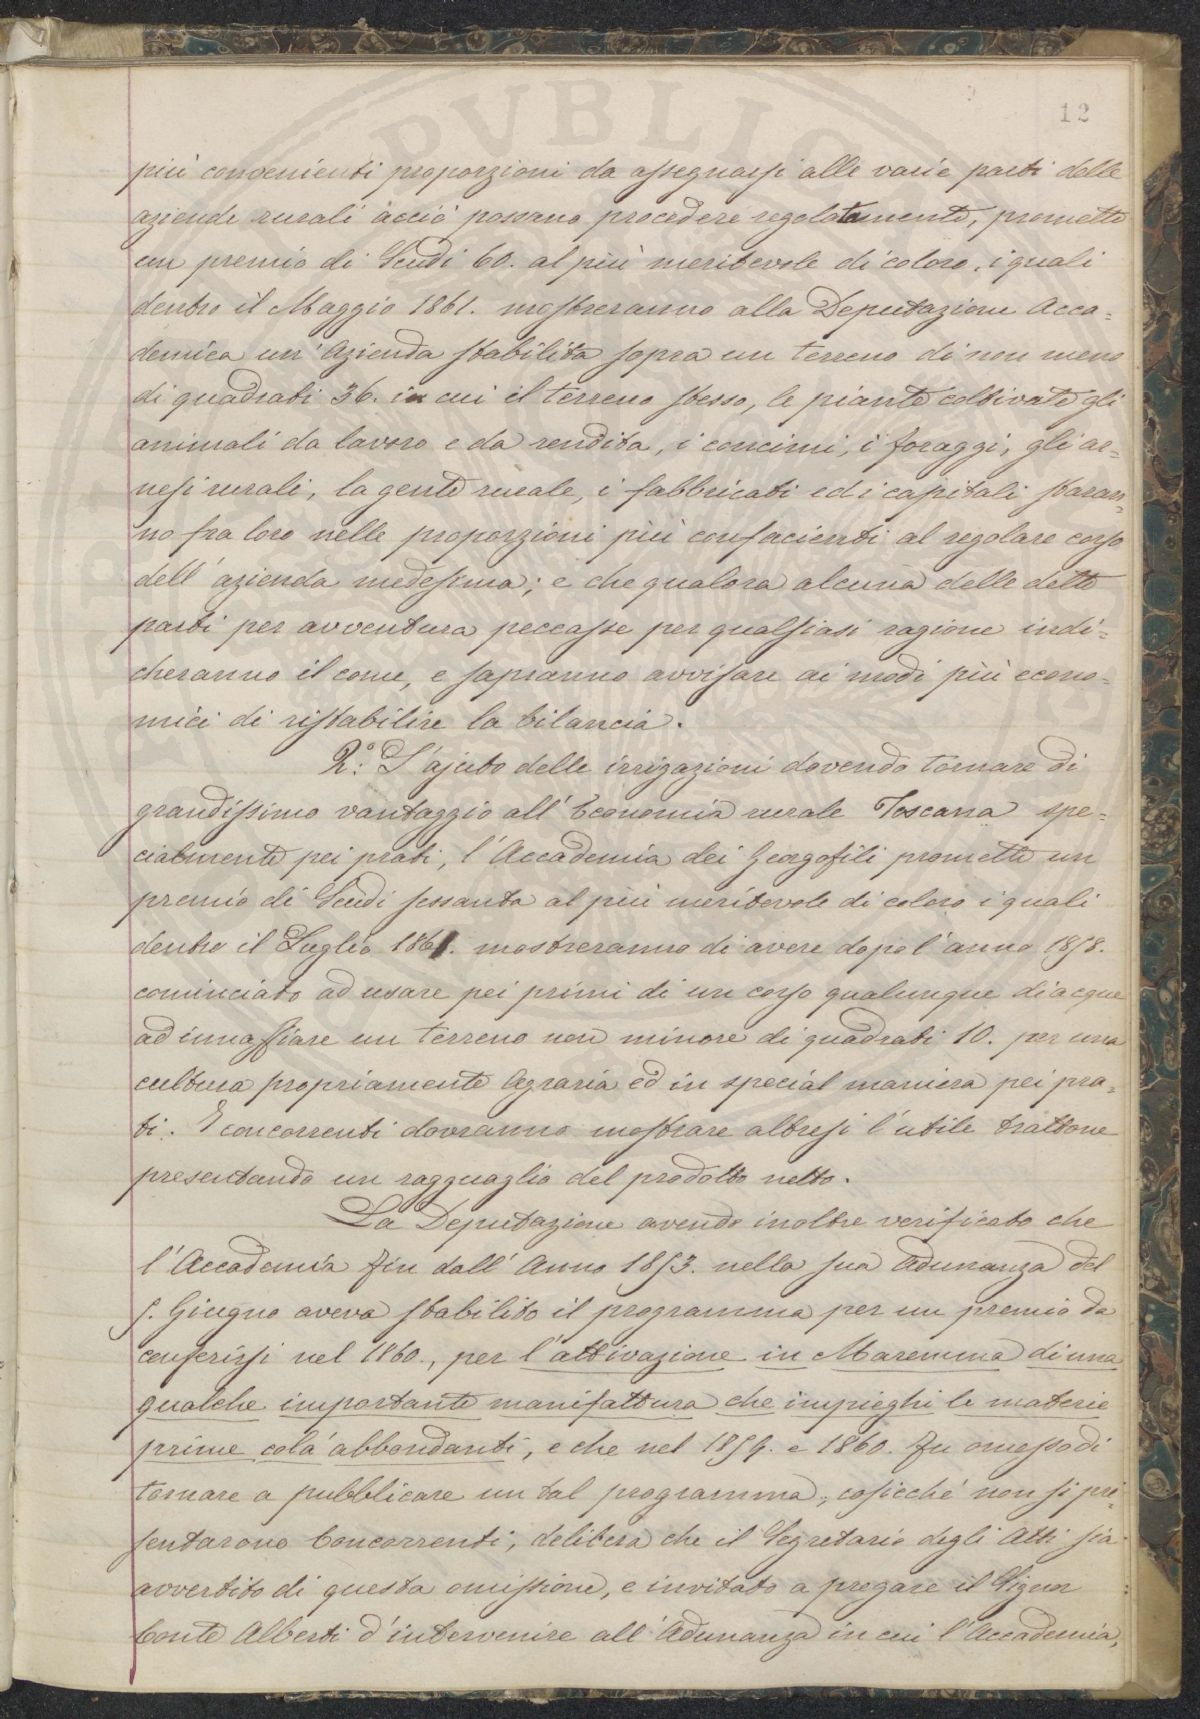 PUBLIC
12
più convenienti proporzioni da assegnarsi alle varie parti delle
aziende rurali acciò possano procedere regolatamente, promette
un premio di Scudi 60. al più meritevole di coloro, i quali
dentro il Maggio 1861. mostreranno alla Deputazione Acca=
demica un' Azienda stabilita sopra un terreno di non meno
di quadrati 36. in cui il terreno stesso, le piante coltivate gli
animali da lavoro e da rendita, i concimi, i foraggi, gli ar=
nesi rurali, la gente rurale, i fabbricati ed i capitali staran=
no fra loro nelle proporzioni più confacienti al regolare corso
dell' azienda medesima; e che qualora alcuna delle dette
parti per avventura peccasse per qualsiasi ragione indi=
cheranno il come, e sapranno avvisare ai modi più econo=
mici di ristabilire la bilancia.
2°: L'ajuto delle irrigazioni dovendo tornare di
grandissimo vantaggio all' Economia rurale Toscana spe=
cialmente pei prati, l' Accademia dei Georgofili promette un
premio di Scudi sessanta al più meritevole di coloro i quali
dentro il Luglio 1861. mostreranno di avere dopo l' anno 1858.
cominciato ad usare pei primi di un corso qualunque di acque
ad innaffiare un terreno non minore di quadrati 10. per una
cultura propriamente Agraria ed in special maniera pei pra=
ti. I concorrenti dovranno mostrare altresì l' utile trattone
presentando un ragguaglio del prodotto netto.
La Deputazione avendo inoltre verificato che
l' Accademia fin dall' Anno 1853. nella sua Adunanza del
5. Giugno aveva stabilito il programma per un premio da
conferirsi nel 1860., per l' attivazione in Maremma di una
qualche importante manifattura che impieghi le materie
prime colà abbondanti, e che nel 1859. e 1860. fu omesso di
tornare a pubblicare un tal programma; cosicché non si pre=
sentarono Concorrenti, delibera che il Segretario degli Atti sia
avvertito di questa omissione, e invitato a pregare il Signor
Conte Alberti d' intervenire all' Adunanza in cui l' Accademia,